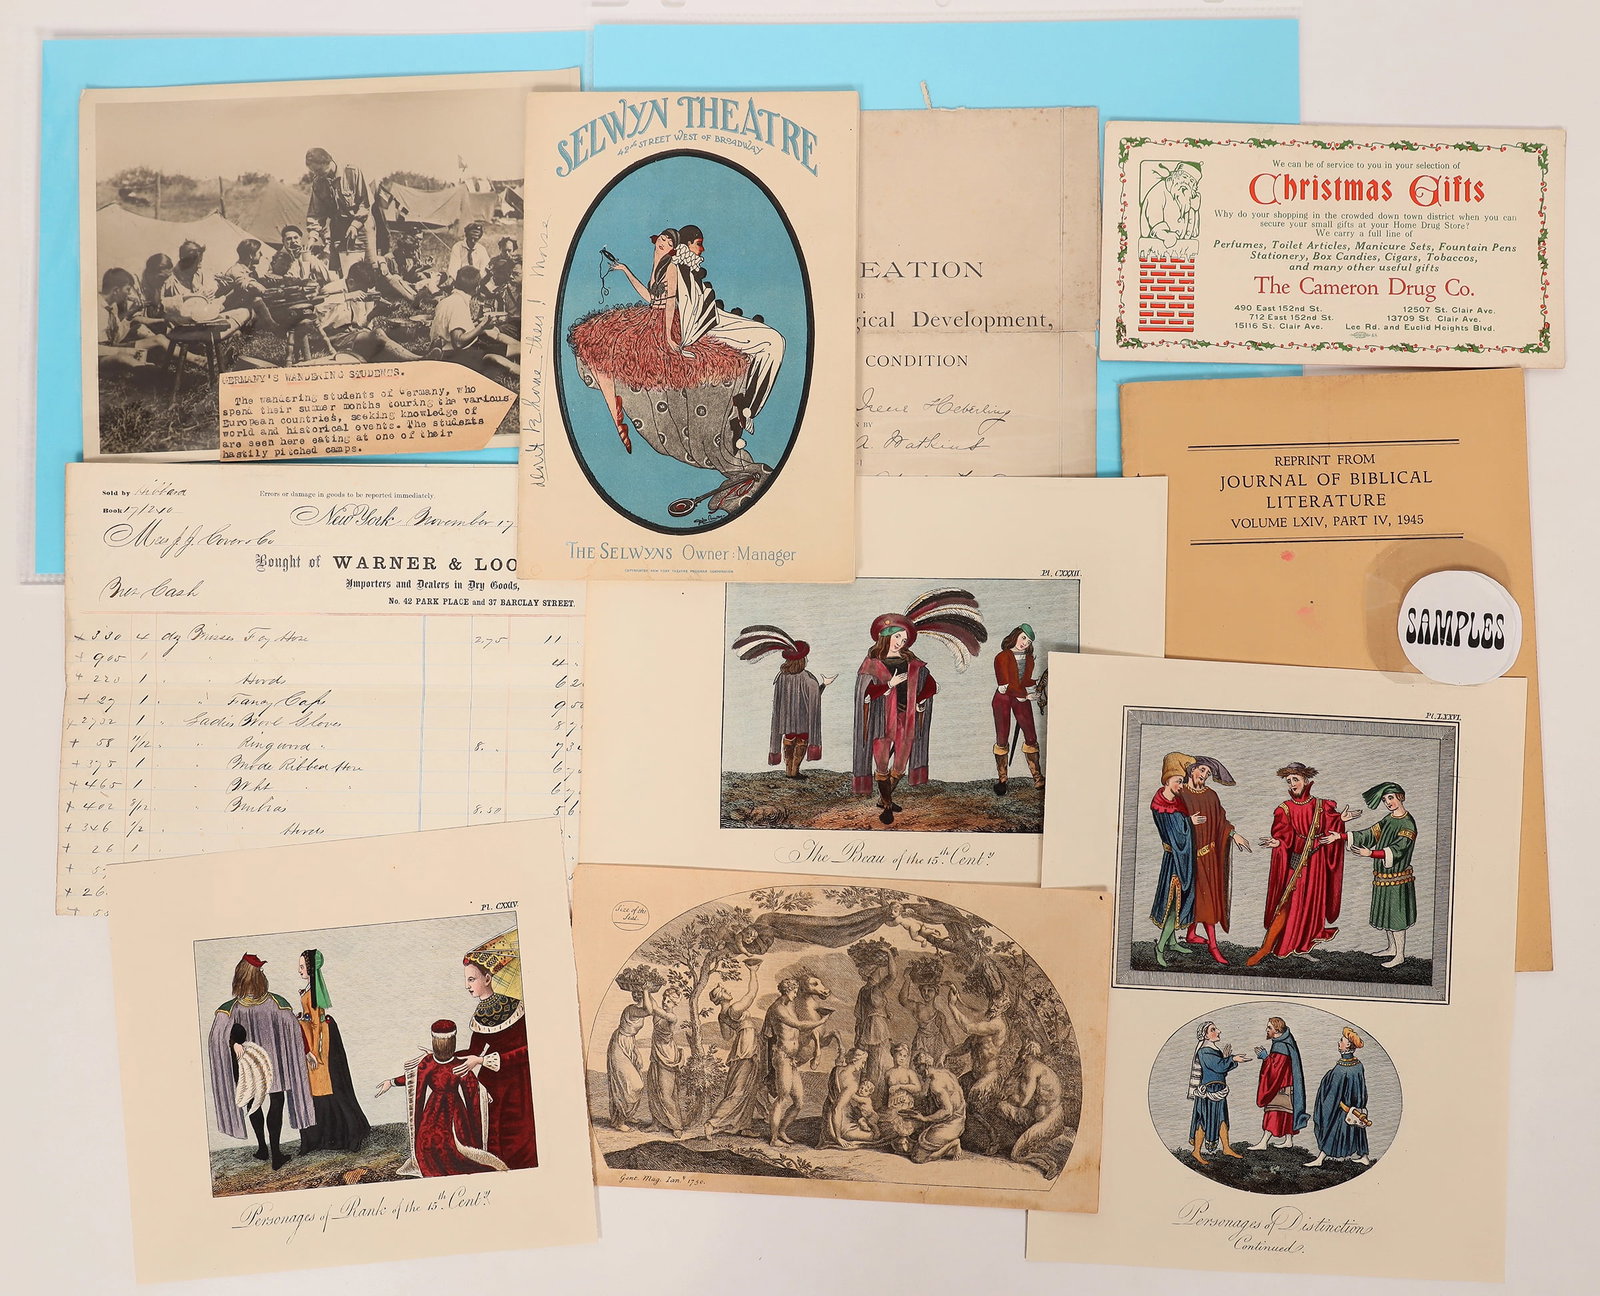 SELWYN THEATRE
42nd STREET WEST OF BROADWAY
THE SELWYNS Owner: Manager
COPYRIGHTED NEW YORK THEATRE PROGRAM CORPORATION
GERMANY'S WANDERING STUDENTS.
The wandering students of Germany, who
spend their summer months touring the various
European countries, seeking knowledge of
world and historical events. The students
are seen here eating at one of their
hastily pitched camps.
EATION
ical Development,
CONDITION
Irene Heberling
A. Watkins
We can be of service to you in your selection of
Christmas Gifts
Why do your shopping in the crowded down town district when you can
secure your small gifts at your Home Drug Store?
We carry a full line of
Perfumes, Toilet Articles, Manicure Sets, Fountain Pens
Stationery, Box Candies, Cigars, Tobaccos,
and many other useful gifts
The Cameron Drug Co.
490 East 152nd St. 12507 St. Clair Ave.
712 East 152nd St. 13709 St. Clair Ave.
15116 St. Clair Ave. Lee Rd. and Euclid Heights Blvd.
REPRINT FROM
JOURNAL OF BIBLICAL
LITERATURE
VOLUME LXIV, PART IV, 1945
SAMPLES
Sold by Hibbard
Errors or damage in goods to be reported immediately.
Book
New York November 17
Bought of WARNER & LOO
Importers and Dealers in Dry Goods,
No. 42 PARK PLACE and 37 BARCLAY STREET.
Cash
+ 330 4 dz Misses Fcy Hose 2.75 11
+ 905 1 4
+ 220 1 Hoods 6 2
+ 29 1 Fancy Caps 9 50
2732 1 Ladies Wool Gloves
+ 58 11/12 Ringwood 8.
+ 375 1 Mode Ribbed Hose
+ 465 1 Wht
+ 402 8/12 8.50 5 6
+ 346 1/2 Hoods
+ 26 1
Pl. CXXXII.
The Beau of the 15th Centy.
Pl. LXXVI.
Personages of Distinction
Continued.
Pl. CXXIV
Personages of Rank of the 15th Centy.
Size of the
Seal.
Gent. Mag. Jany. 1750.